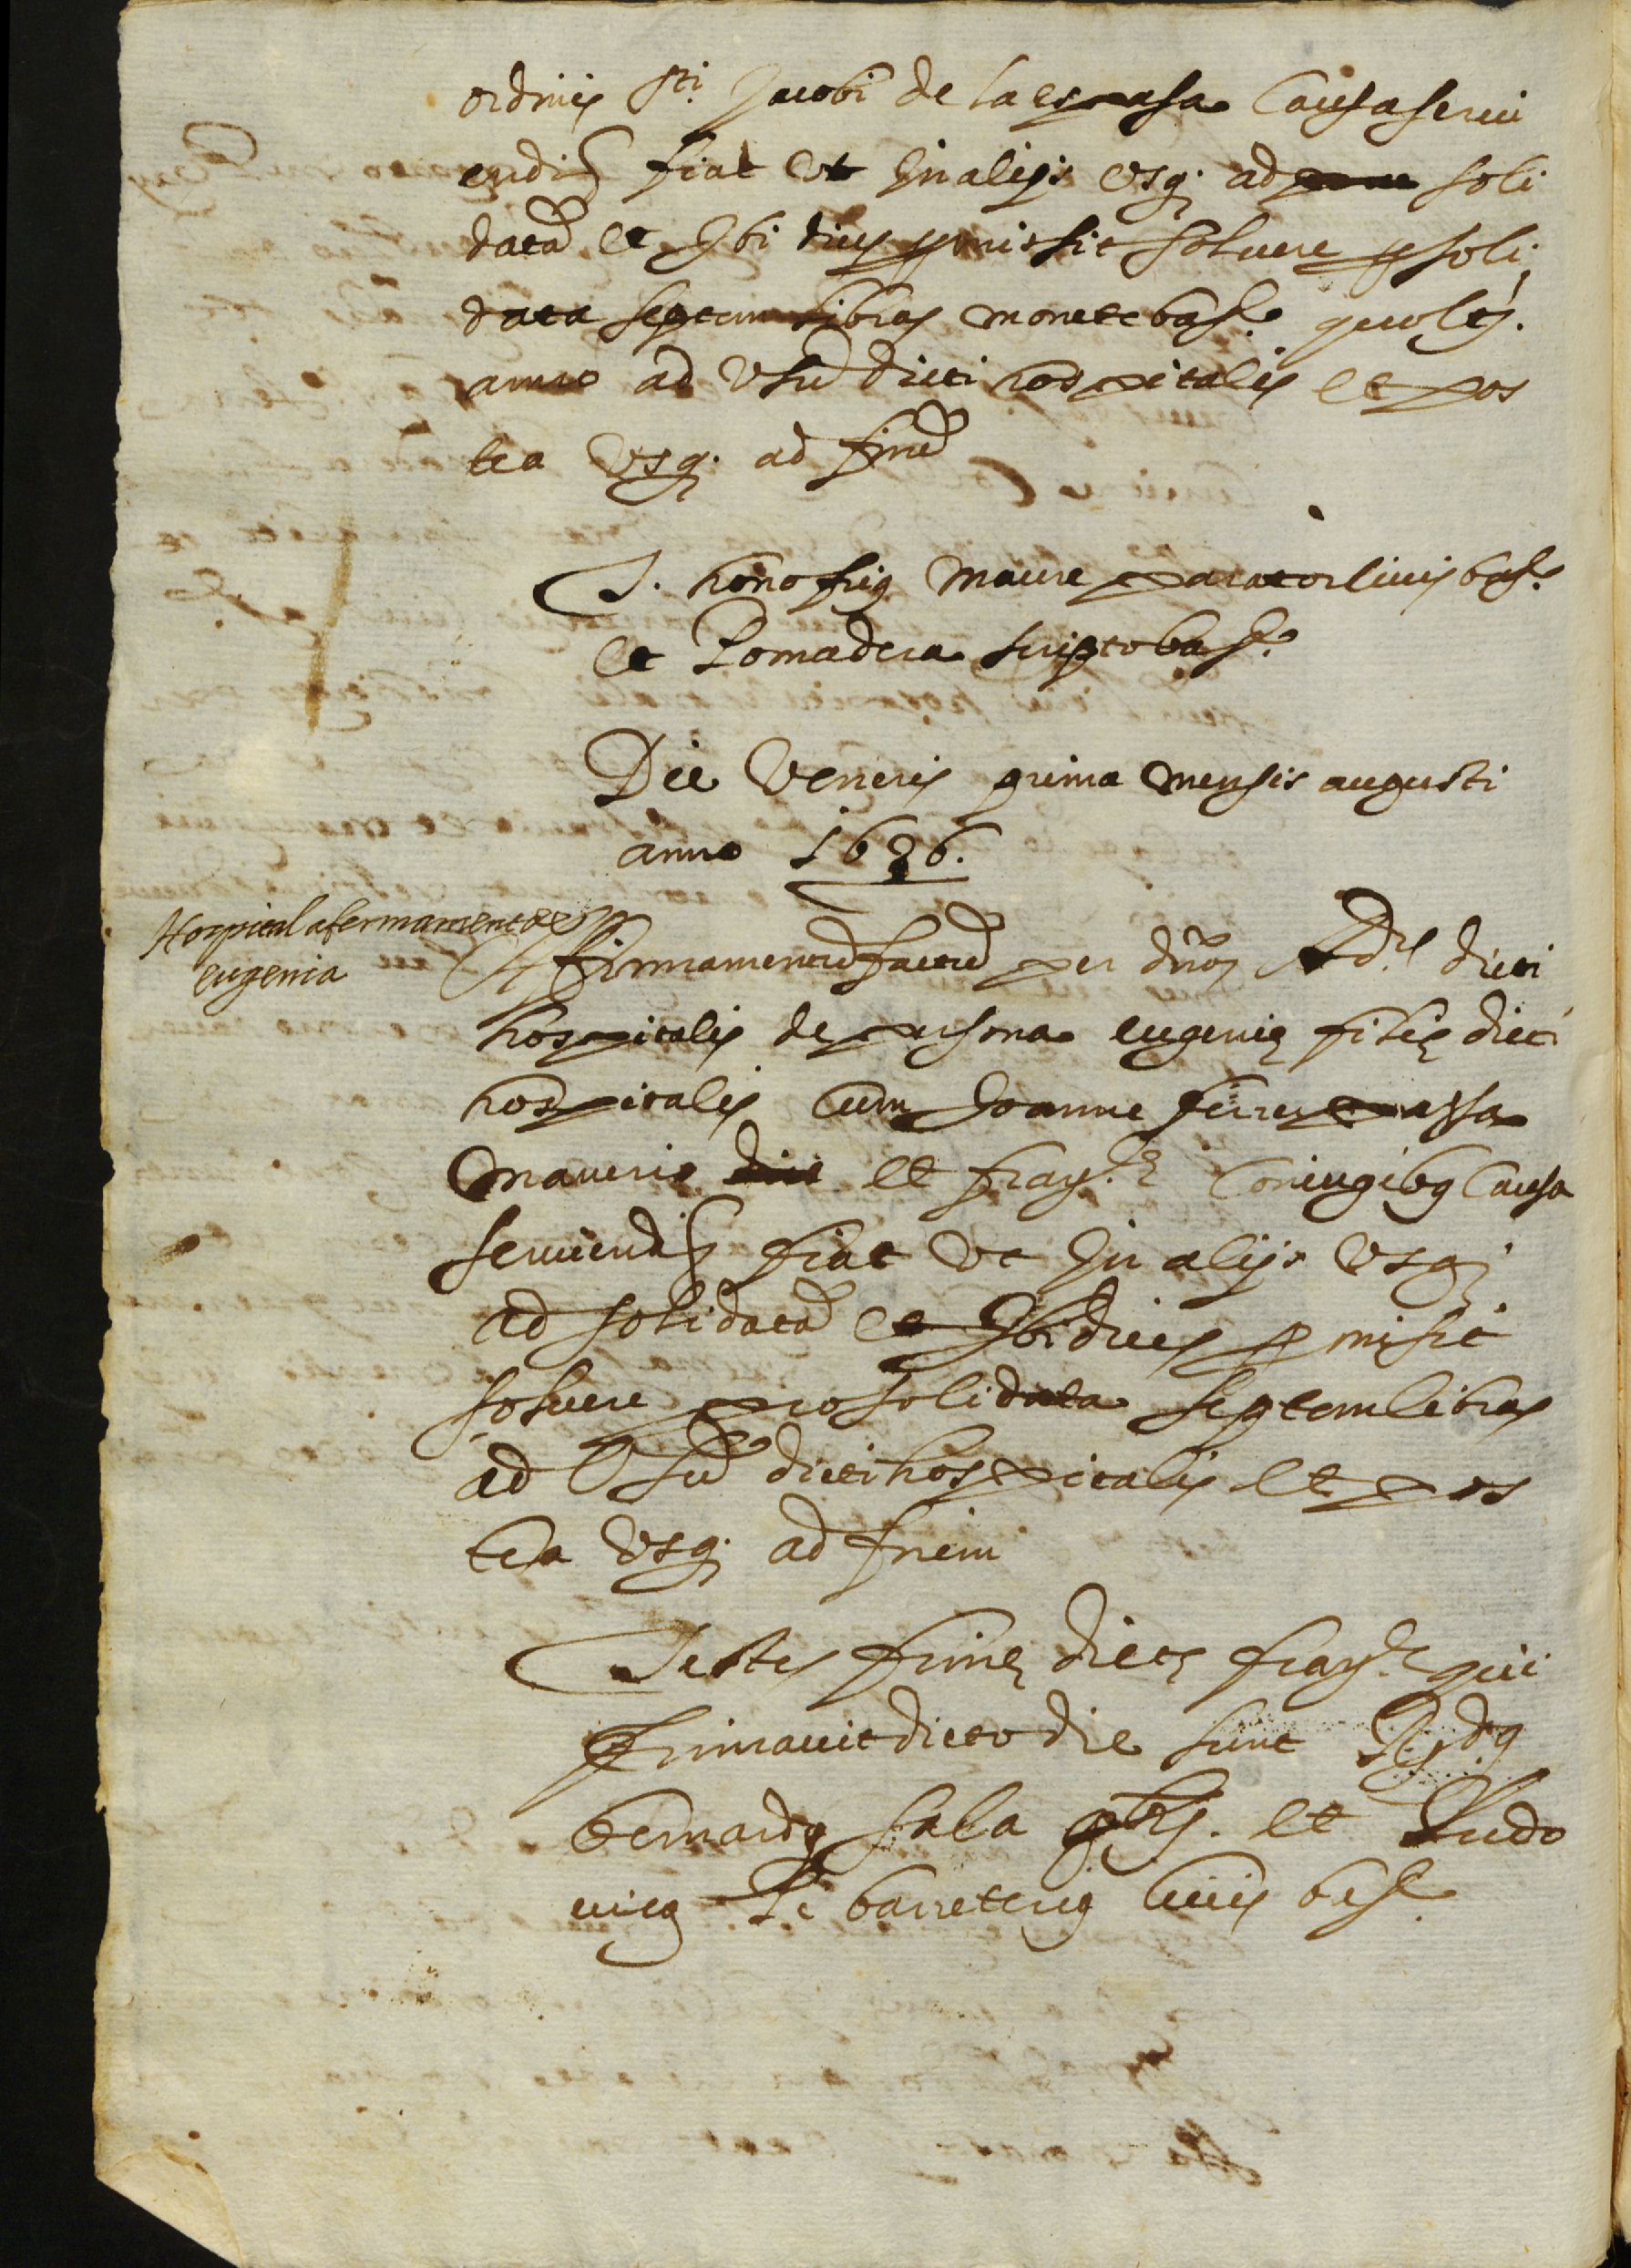 ordinis sti. Jacobi de la espasa Causa servi
endi fiat ut in alijs usq. ad soli
data et ibi dius promissit solvere pro soli
data septem libras monete bar.e quolt.
anno ad usu dicti hospitalis et pos
tea usq. ad fine
T. honofrius Maure parator civis bar.e
et Pomadera scripto bar.e
Die Veneris prima mensis augusti
anno 1636.
Hospital afermament de
eugenia
Affirmamentu factu per dnos Ad.es dicti
hospitalis de persona eugenie filie dicti
hospitalis cum Joanne ferrer massa
et fray.ca Coniugibus Causa
serviendi fiat ut in alijs usq.
ad solidata et ibi dicti promisit
solvere pro solidata septem libras
ad usu dicti hospitalis et pos
tea usq. ad finem
Testes firme dicte fray.ce qui
firmavit dicto die sunt Rdus
bernardus sala pbr. et Ludo
vicus barreterius civis bar.e